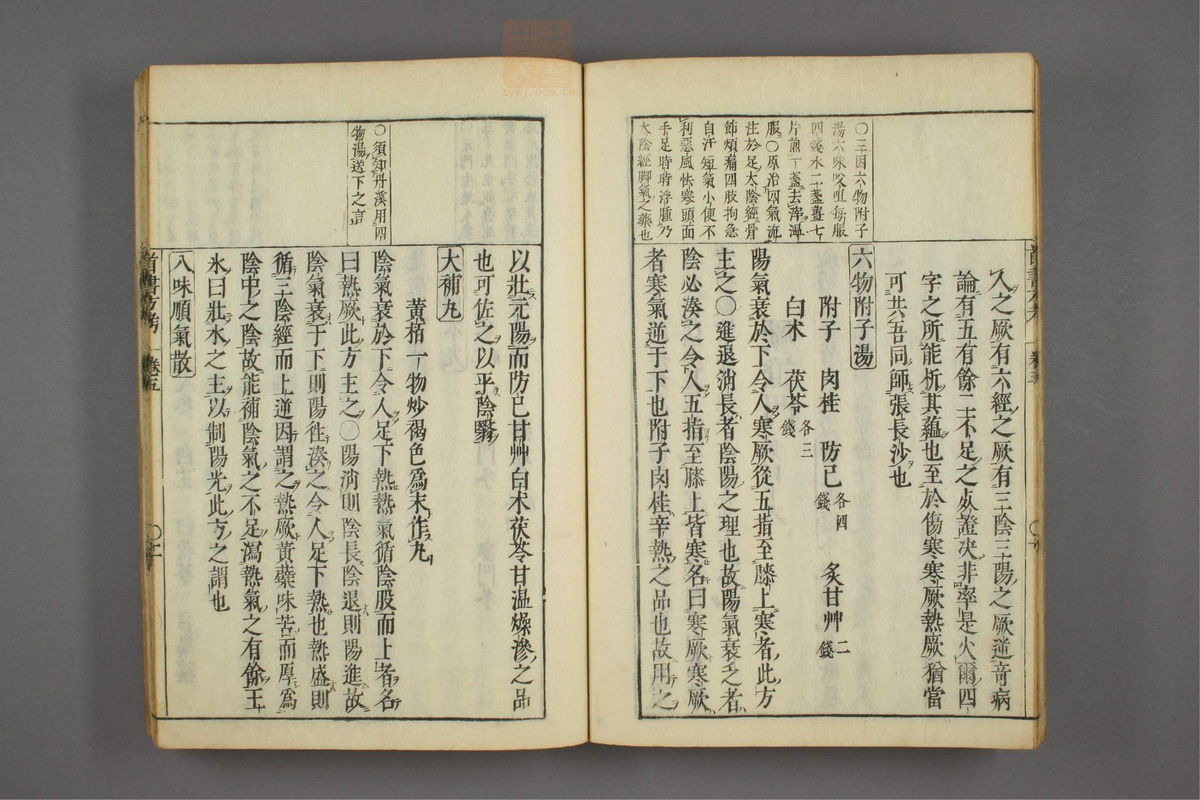 人之厥有六經之厥有三陰三陽之厥遒竒病
論有五有餘二不足之死證决非率是火爾四
字之所能析其蘊也至於傷寒寒厥熱厥猶當
可共吾同師張長沙也
〇三因六物附子
湯六味㕮咀每服
四錢水二盞薑七
片煎一盞去滓温
服〇原治四氣流
注於足太陰經骨
節煩痛四肢拘急
自汗短氣小便不
利惡風怯寒頭面
手足時時浮腫乃
太陰經脚氣之藥也
六物附子湯
附子 肉桂 防己各四錢 炙甘艸二錢
白朮 茯苓各三錢
陽氣衰於下令人寒厥從五指至膝上寒者此方
主之〇進退消長者陰陽之理也故陽氣衰乏者
陰必湊之令人五指至膝上皆寒名曰寒厥寒厥
者寒氣逆于下也附子肉桂辛熱之品也故用之
以壯元陽而防己甘艸白朮茯苓甘温燥滲之品
也可佐之以平陰翳
大補丸
黄栢一物炒褐色爲末作丸
〇須知丹溪用四
物湯送下之言
陰氣衰於下令人足下熱熱氣循陰股而上者名
曰熱厥此方主之〇陽消則陰長陰退則陽進故
陰氣衰于下則陽徃湊之令人足下熱也熱盛則
循三陰經而上逆因謂之熱厥黄蘗味苦而厚爲
陰中之陰故能補陰氣之不足瀉熱氣之有餘王
氷曰壯水之主以制陽光此方之謂也
八味順氣散
卷五